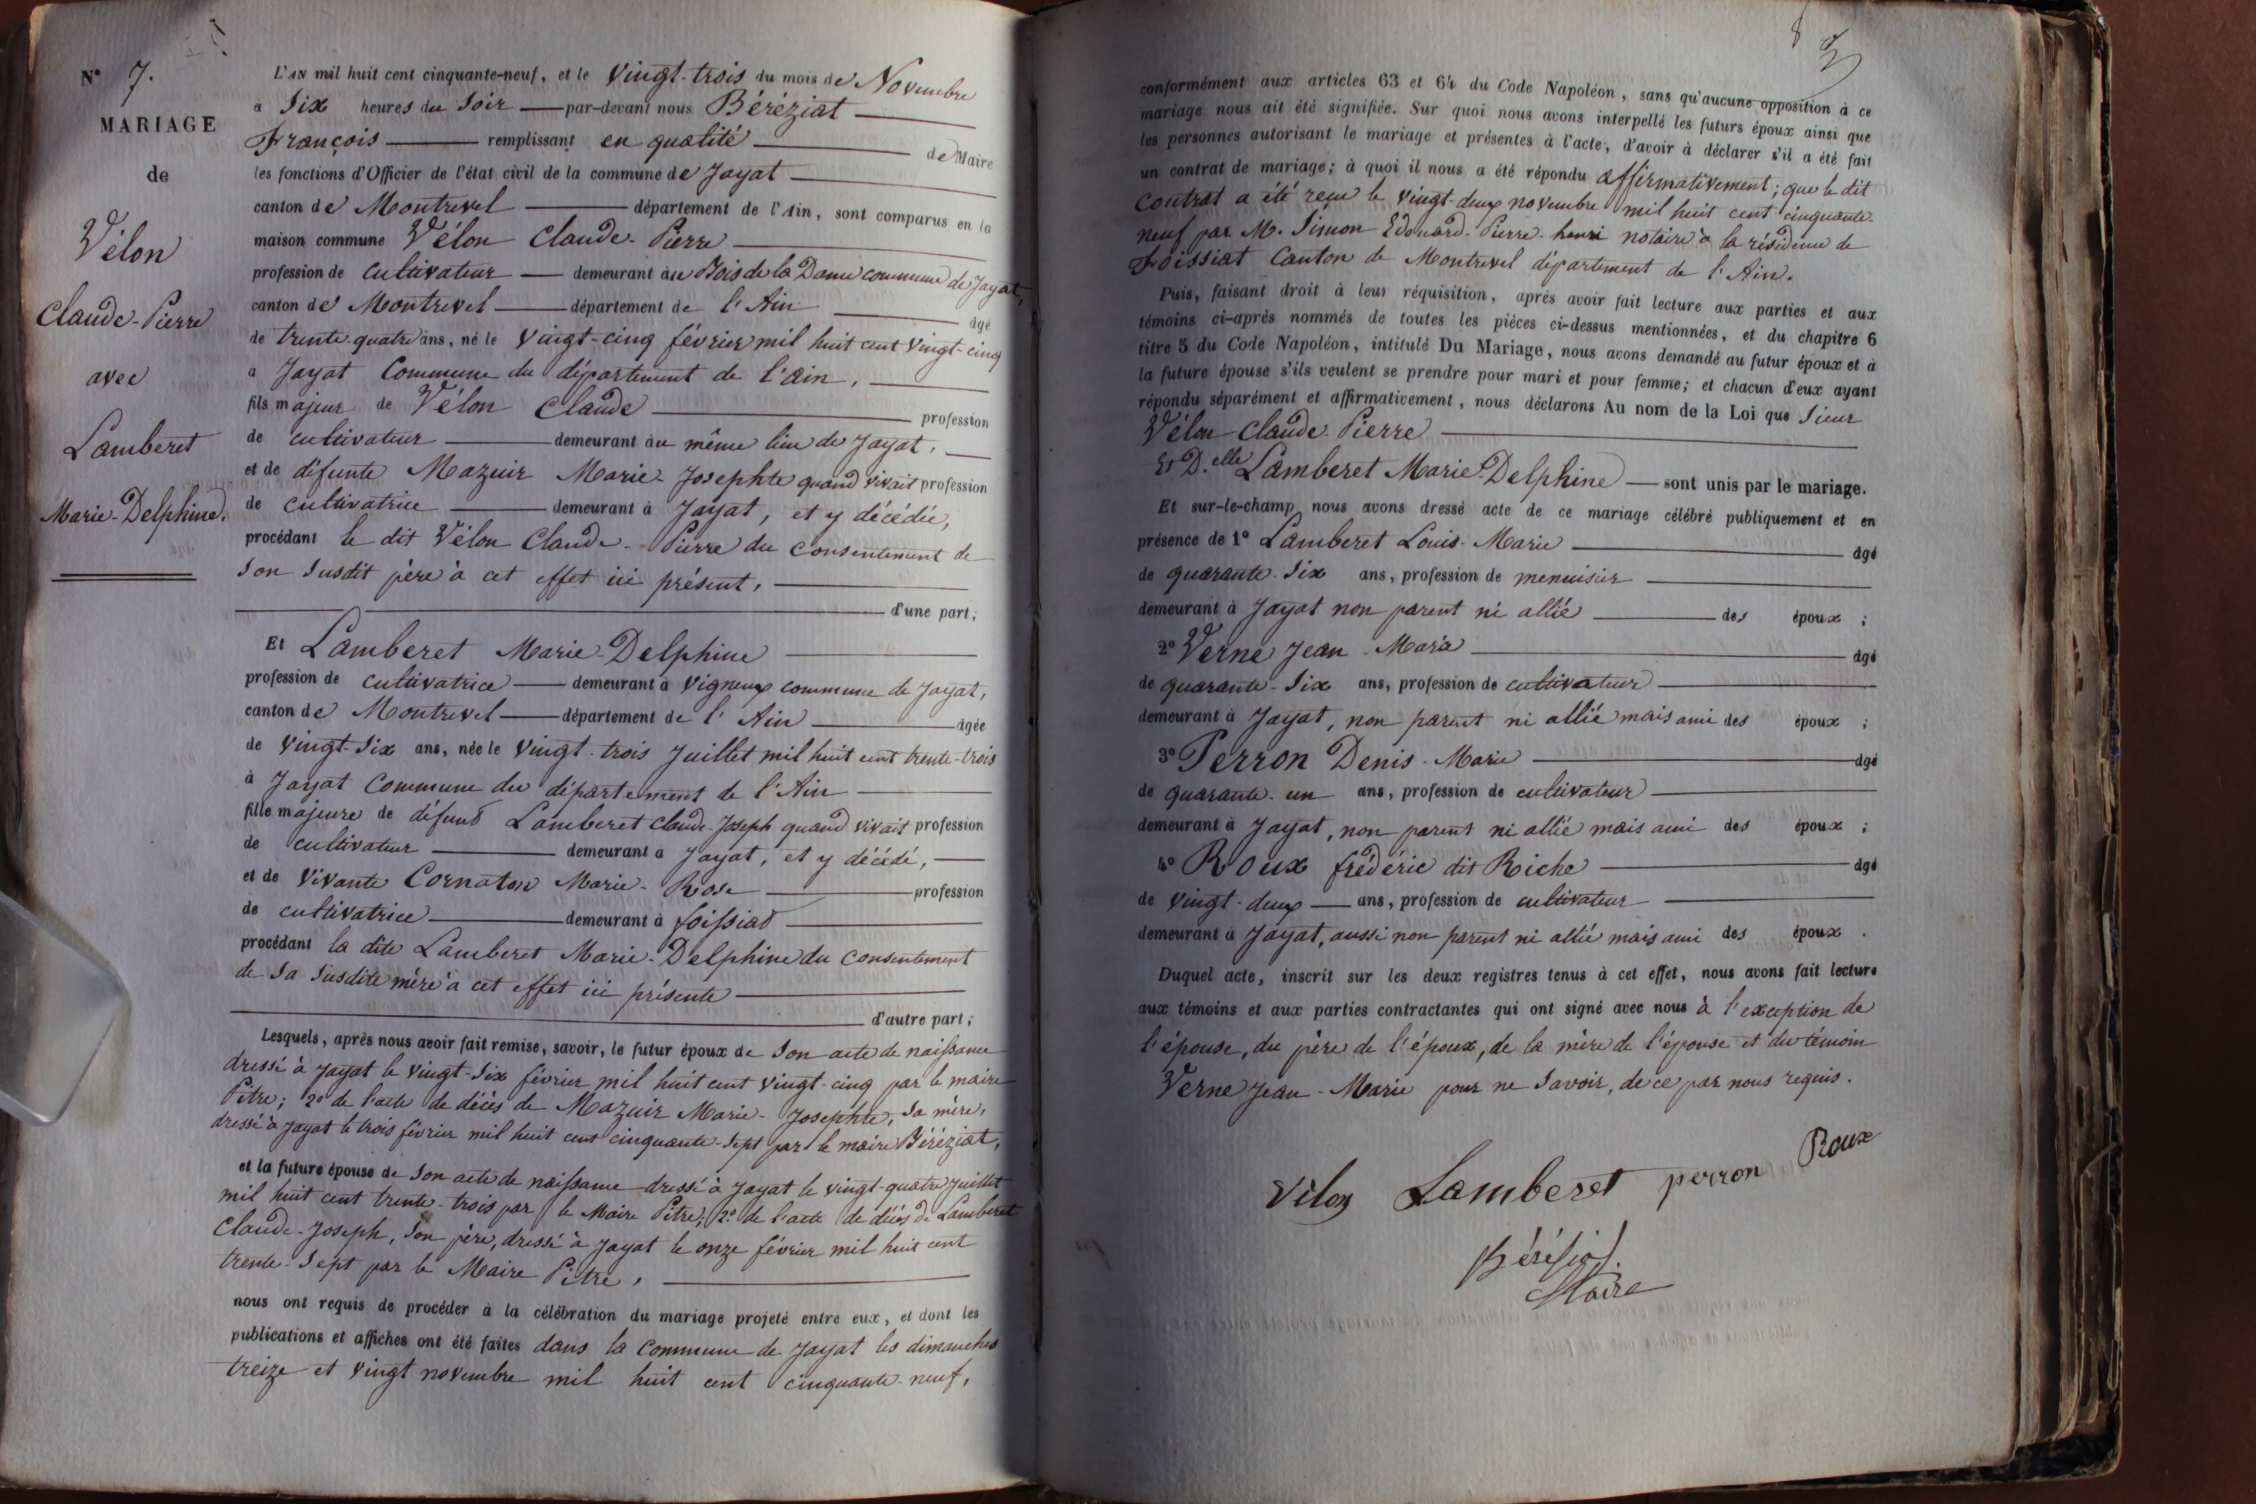 N° 7.
MARIAGE
de
Vélon
Claude-Pierre
avec
Lamberet
Marie-Delphine.
L'AN mil huit cent cinquante-neuf, et le vingt-trois du mois de Novembre
à six heures du soir par-devant nous Béréziat
François remplissant en qualité de Maire
les fonctions d'Officier de l'état civil de la commune de Jayat
canton de Montrevel département de l'Ain, sont comparus en la
maison commune Vélon Claude-Pierre
profession de cultivateur demeurant au Bois de la Dame commune de Jayat,
canton de Montrevel département de l'Ain âgé
de trente-quatre ans, né le vingt-cinq février mil huit cent vingt-cinq
à Jayat Commune du département de l'Ain,
fils majeur de Vélon Claude profession
de cultivateur demeurant au même lieu de Jayat,
et de défunte Mazuir Marie-Josephte quand vivait profession
de cultivatrice demeurant à Jayat, et y décédée,
procédant le dit Vélon Claude-Pierre du consentement de
son susdit père à cet effet ici présent,
d'une part;
Et Lamberet Marie-Delphine
profession de cultivatrice demeurant à Vigneux commune de Jayat,
canton de Montrevel département de l'Ain âgée
de vingt-six ans, née le vingt-trois Juillet mil huit cent trente-trois
à Jayat Commune du département de l'Ain
fille majeure de défunt Lamberet Claude-Joseph quand vivait profession
de cultivateur demeurant à Jayat, et y décédé,
et de vivante Cornaton Marie-Rose profession
de cultivatrice demeurant à foissiat
procédant la dite Lamberet Marie-Delphine du consentement
de sa susdite mère à cet effet ici présente
d'autre part;
Lesquels, après nous avoir fait remise, savoir, le futur époux de son acte de naissance
dressé à Jayat le vingt-six février mil huit cent vingt-cinq par le maire
Pitre; 2° de l'acte de décès de Mazuir Marie-Josephte, sa mère,
dressé à Jayat le trois février mil huit cent cinquante-sept par le maire Béréziat,
et la future épouse de son acte de naissance dressé à Jayat le vingt-quatre juillet
mil huit cent trente-trois par le Maire Pitre; 2° de l'acte de décès de Lamberet
Claude-Joseph, son père, dressé à Jayat le onze février mil huit cent
trente-sept par le Maire Pitre,
nous ont requis de procéder à la célébration du mariage projeté entre eux, et dont les
publications et affiches ont été faites dans la commune de Jayat les dimanches
treize et vingt novembre mil huit cent cinquante-neuf,
conformément aux articles 63 et 64 du Code Napoléon, sans qu'aucune opposition à ce
mariage nous ait été signifiée. Sur quoi nous avons interpellé les futurs époux ainsi que
les personnes autorisant le mariage et présentes à l'acte, d'avoir à déclarer s'il a été fait
un contrat de mariage; à quoi il nous a été répondu affirmativement; que le dit
contrat a été reçu le vingt-deux novembre mil huit cent cinquante-
neuf par M. Simon Edouard-Pierre-henri notaire à la résidence de
Foissiat Canton de Montrevel département de l'Ain.
Puis, faisant droit à leur réquisition, après avoir fait lecture aux parties et aux
témoins ci-après nommés de toutes les pièces ci-dessus mentionnées, et du chapitre 6
titre 5 du Code Napoléon, intitulé Du Mariage, nous avons demandé au futur époux et à
la future épouse s'ils veulent se prendre pour mari et pour femme; et chacun d'eux ayant
répondu séparément et affirmativement, nous déclarons Au nom de la Loi que Sieur
Vélon Claude-Pierre
Et D.elle Lamberet Marie-Delphine sont unis par le mariage.
Et sur-le-champ nous avons dressé acte de ce mariage célébré publiquement et en
présence de 1° Lamberet Louis-Marie âgé
de quarante-six ans, profession de menuisier
demeurant à Jayat non parent ni allié des époux;
2° Verne Jean-Marie âgé
de quarante-six ans, profession de cultivateur
demeurant à Jayat, non parent ni allié mais ami des époux;
3° Perron Denis-Marie âgé
de quarante-un ans, profession de cultivateur
demeurant à Jayat, non parent ni allié mais ami des époux;
4° Roux frédéric dit Riche âgé
de vingt-deux ans, profession de cultivateur
demeurant à Jayat, aussi non parent ni allié mais ami des époux.
Duquel acte, inscrit sur les deux registres tenus à cet effet, nous avons fait lecture
aux témoins et aux parties contractantes qui ont signé avec nous à l'exception de
l'épouse, du père de l'époux, de la mère de l'épouse et du témoin
Verne Jean-Marie pour ne savoir, de ce par nous requis.
Vélon Lamberet perron Roux
Béréziat
Maire